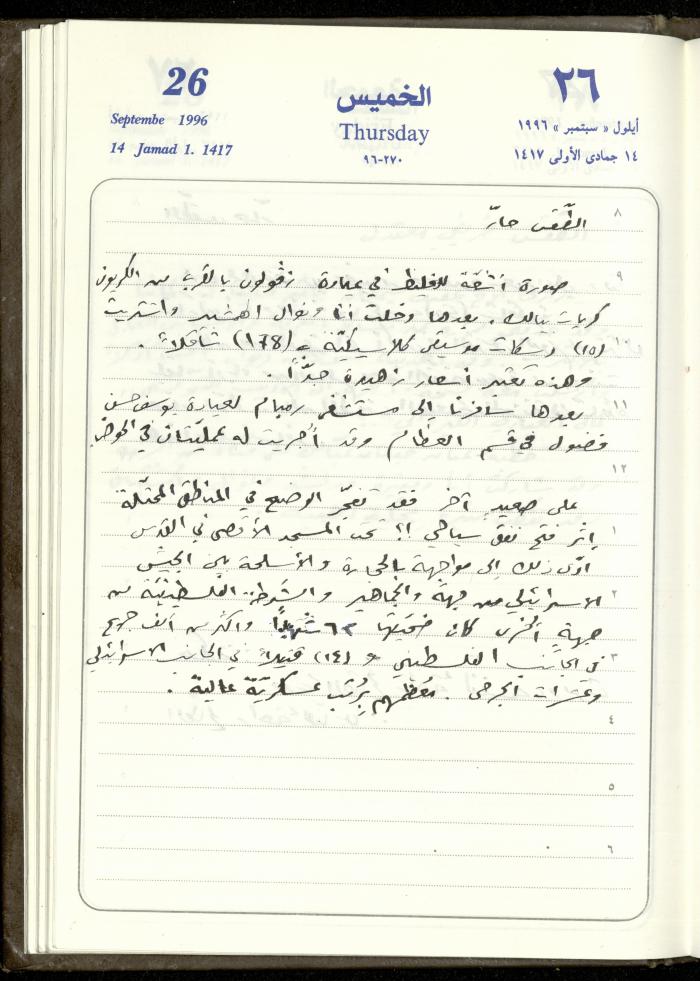 26
Septembe 1996
14 Jamad 1. 1417
الخميس
Thursday
٩٦-٢٧٠
٢٦
أيلول « سبتمبر » ١٩٩٦
١٤ جمادى الأولى ١٤١٧
٨
الطَّقس حارّ
٩
صورة أشعّة للغليظ في عيادة زڤولون بالقرب من الكريون
كريات بيالك. بعدها دخلت أنا ونوال الهمشبير واشتريت
(١٥) دسكات موسيقى كلاسيكيّة بـ (178) شاقلاً.
وهذه تعتبر أسعار زهيدة جدّاً.
١١
بعدها سافرنا الى مستشفى رمبام لعيادة يوسف حسن
فضول في قسم العظام وقد أُجريت له عمليّتان في الحوض
١٢
على صعيدٍ آخر فقد تفجّر الوضع في المناطق المحتلّة
١
إثر فتح نفق سياحي !! تحت المسجد الأقصى في القدس
أدّى ذلك إلى مواجهة بالحجارة والأسلحة بين الجيش
٢
الاسرائيلي من جهةٍ والجماهير والشرطة الفلسطينيّة من
جهةٍ أخرى كان ضحيّتها ٦٢ شهيداً وأكثر من ألف جريح
٣
في الجانب الفلسطيني و (١٤) قتيلاً في الجانب الاسرائيلي
وعشرات الجرحى. معظمهم برُتب عسكريّة عالية.
٤
٥
٦